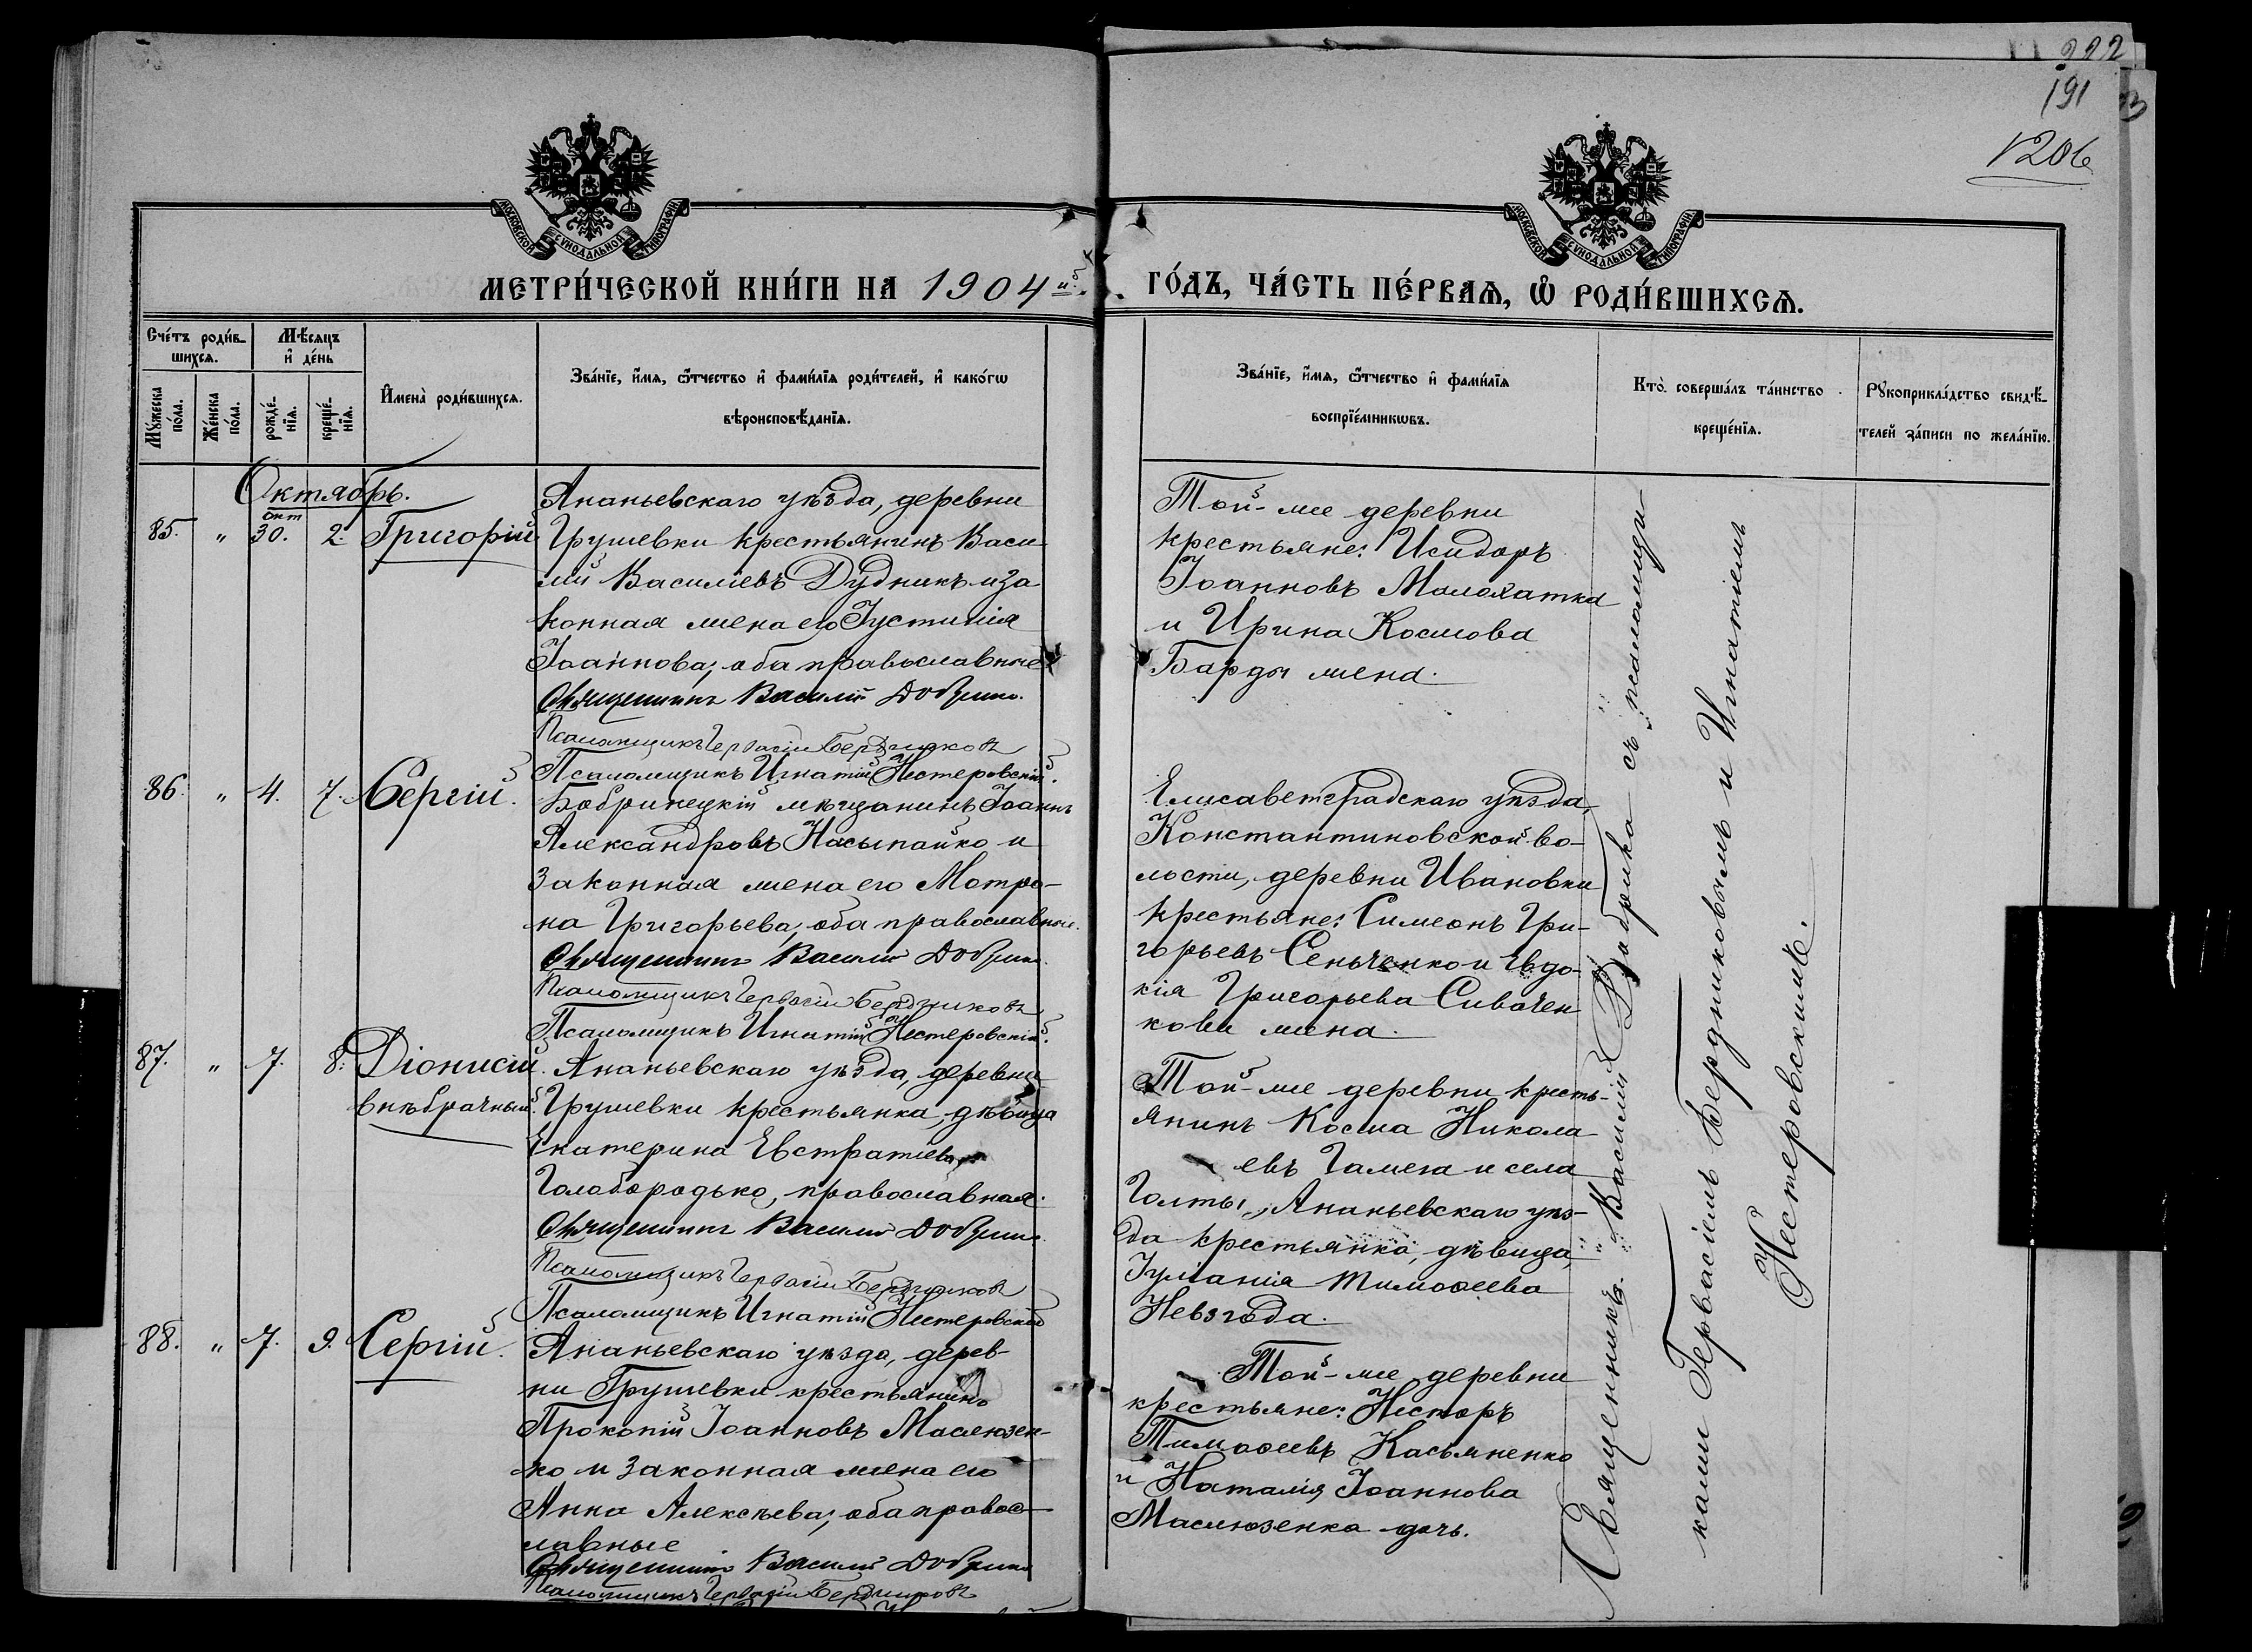 222
191
1206
МОСКОВСКОЙ СѴНОДАЛЬНОЙ ТИПОГРАФІИ
МОСКОВСКОЙ СѴНОДАЛЬНОЙ ТИПОГРАФІИ
МЕТРИ́ЧЕСКОЙ КНИ́ГИ НА 1904й
ГО́ДЪ, ЧА́СТЬ ПЕ́РВАѦ, Ѽ РОДИ́ВШИХСѦ.
Сче́тъ роди́в-
шихсѧ.
Мѣ́сяцъ
и҆ де́нь
Мꙋ́жеска
по́ла.
Же́нска
по́ла.
рожде́-
нїѧ.
креще́-
нїѧ.
И҆мена̀ роди́вшихсѧ.
Зва́нїе, и҆́мѧ, ѻ҆́тчество и҆ фами́лїѧ роди́телей, и҆ како́гѡ
вѣроисповѣ́данїѧ.
Зва́нїе, и҆́мѧ, ѻ҆́тчество и҆ фами́лїѧ
воспрїе́мникѡвъ.
Кто̀ соверша́лъ та́инство
креще́нїѧ.
Рꙋкоприкла́дство свидѣ́-
телей за́писи по жела́нїю.
Октябрь.
85. " окт 30. 2. Григорій
Ананьевскаго уѣзда, деревни
Грушевки крестьянинъ Васи-
лій Василіевъ Дудникъ и за
конная жена его Іустинія
Іоаннова; оба православные.
Священникъ Василій Добрика.
Псаломщикъ Гервасій Бердниковъ
Псаломщикъ Игнатій Нестеровскій.
Той-же деревни
крестьяне: Исидоръ
Іоанновъ Малохатка
и Ирина Космова
Барды жена.
86. " 4. 7. Сергій.
Бобринецкій мѣщанинъ Іоаннъ
Александровъ Насыпайко и
законная жена его Матро-
на Григорьева; оба православные.
Священникъ Василій Добрика.
Псаломщикъ Гервасій Бердниковъ
Псаломщикъ Игнатій Нестеровскій.
Елисаветградскаго уѣзда,
Константиновской во-
лости, деревни Ивановки
крестьяне: Симеонъ Гри-
горьевъ Сенченко и Евдо-
кія Григорьева Сивачен
кова жена.
87. " 7. 8. Діонисій.
внѣбрачный.
Ананьевскаго уѣзда, деревни
Грушевки крестьянка, дѣвица
Екатерина Евстратіева
Голобородько, православная.
Священникъ Василій Добрика.
Псаломщикъ Гервасій Бердниковъ
Псаломщикъ Игнатій Нестеровскій
Той-же деревни кресть-
янинъ Косма Никола-
евъ Гамега и села
Голты, Ананьевскаго уѣз-
да крестьянка, дѣвица,
Іуліанія Тимоѳеева
Невзгода.
88. " 7. 9. Сергій.
Ананьевскаго уѣзда, дерев-
ни Грушевки крестьянинъ
Прокопій Іоанновъ Маслюзен-
ко и законная жена его
Анна Алексѣева; оба право-
славные
Священникъ Василій Добрика
Псаломщикъ Гервасій Бердниковъ
Той-же деревни
крестьяне: Несторъ
Тимоѳеевъ Касьяненко
и Наталія Іоаннова
Маслюзенка дочь.
Священникъ Василій Добрика съ псаломщи-
ками Гервасіемъ Бердниковымъ и Игнатіемъ
Нестеровскимъ.